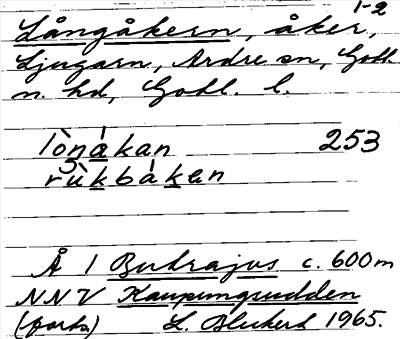 1-2
Långåkern, åker,
Ljugarn, Ardre sn, Gotl.
n. hd, Gotl. l.
lò̀ŋåkan 253
rùkbákan
Å 1 Butrajvs c. 600m
NNV Kaupungsudden
(forts.) L. Bleckert 1965.